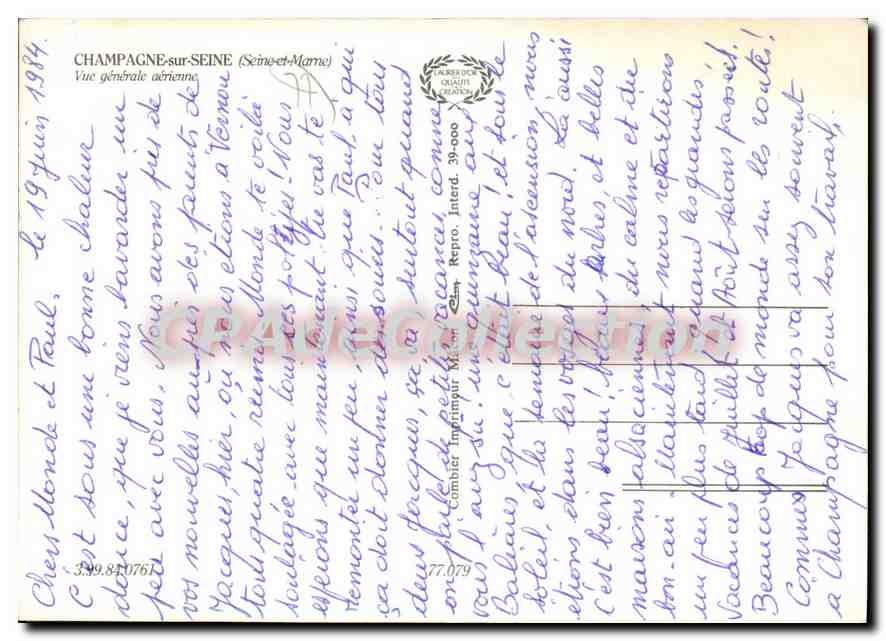 CHAMPAGNE-sur-SEINE (Seine-et-Marne)
Vue générale aérienne
LAURIER D'OR
DE LA
QUALITÉ
DE LA
CREATION
3.99.84.0761
77.079
Combier Imprimeur Macon Cim Repro. Interd. 39-000
CPADeCollection
le 19 juin 1984.
Chers Monde et Paul.
C'est sous une bonne chaleur
dance, que je viens bavarder un
peu avec vous. Nous avons pris de
vos nouvelles auprès des parents de
Jacques, hier, où nous étions à Vernou
tous quatre réunis. Monde te voilà
soulagée avec tous ces polypes! Nous
espérons que maintenant tu vas te
remonter un peu, ainsi que Paul, à qui
ça doit donner des soucis... oui tous
deux Jacques, ça va surtout quand
on parle de petites vacances, comme
vous l'avez su: une semaine aux
Baléares que c'était beau! et sous le
soleil, et la semaine de l'ascension, nous
etions dans les vosges du nord. La aussi
c'est bien beau! beaux arbres, et belles
maisons alsaciennes, du calme et du
bon-air. Maintenant nous repartirons
un peu plus tard quand les grandes
vacances de Juillet et Août seront passées!
Beaucoup trop de monde sur les routes!
Comme Jacques va assez souvent
à Champagne pour son travail,